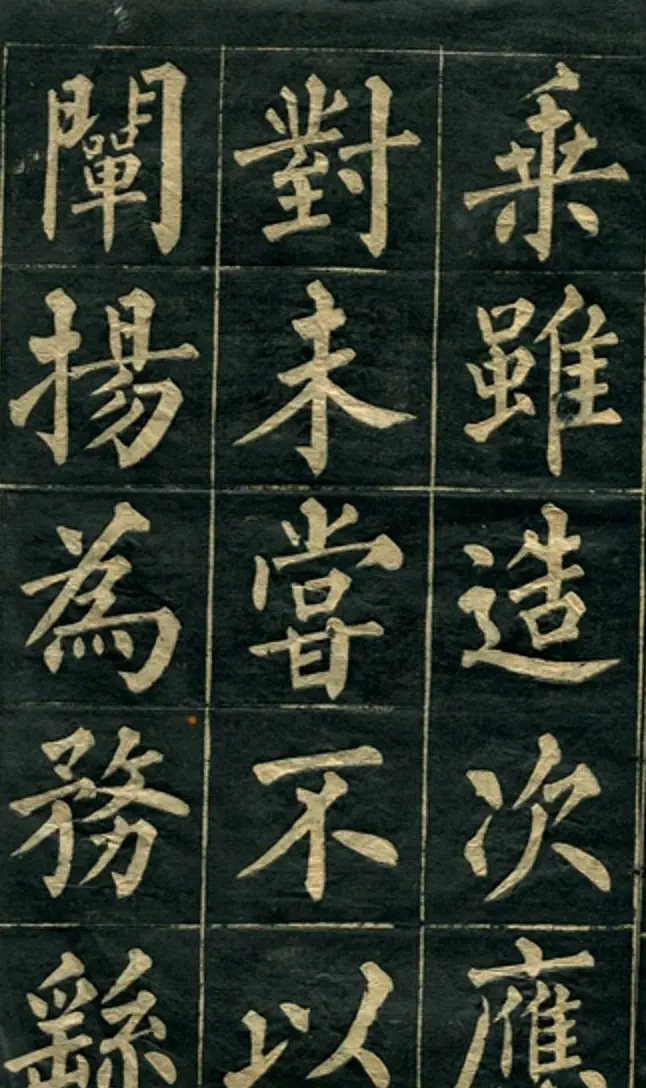 乗雖造次應
對未嘗不以
闡揚為務繇